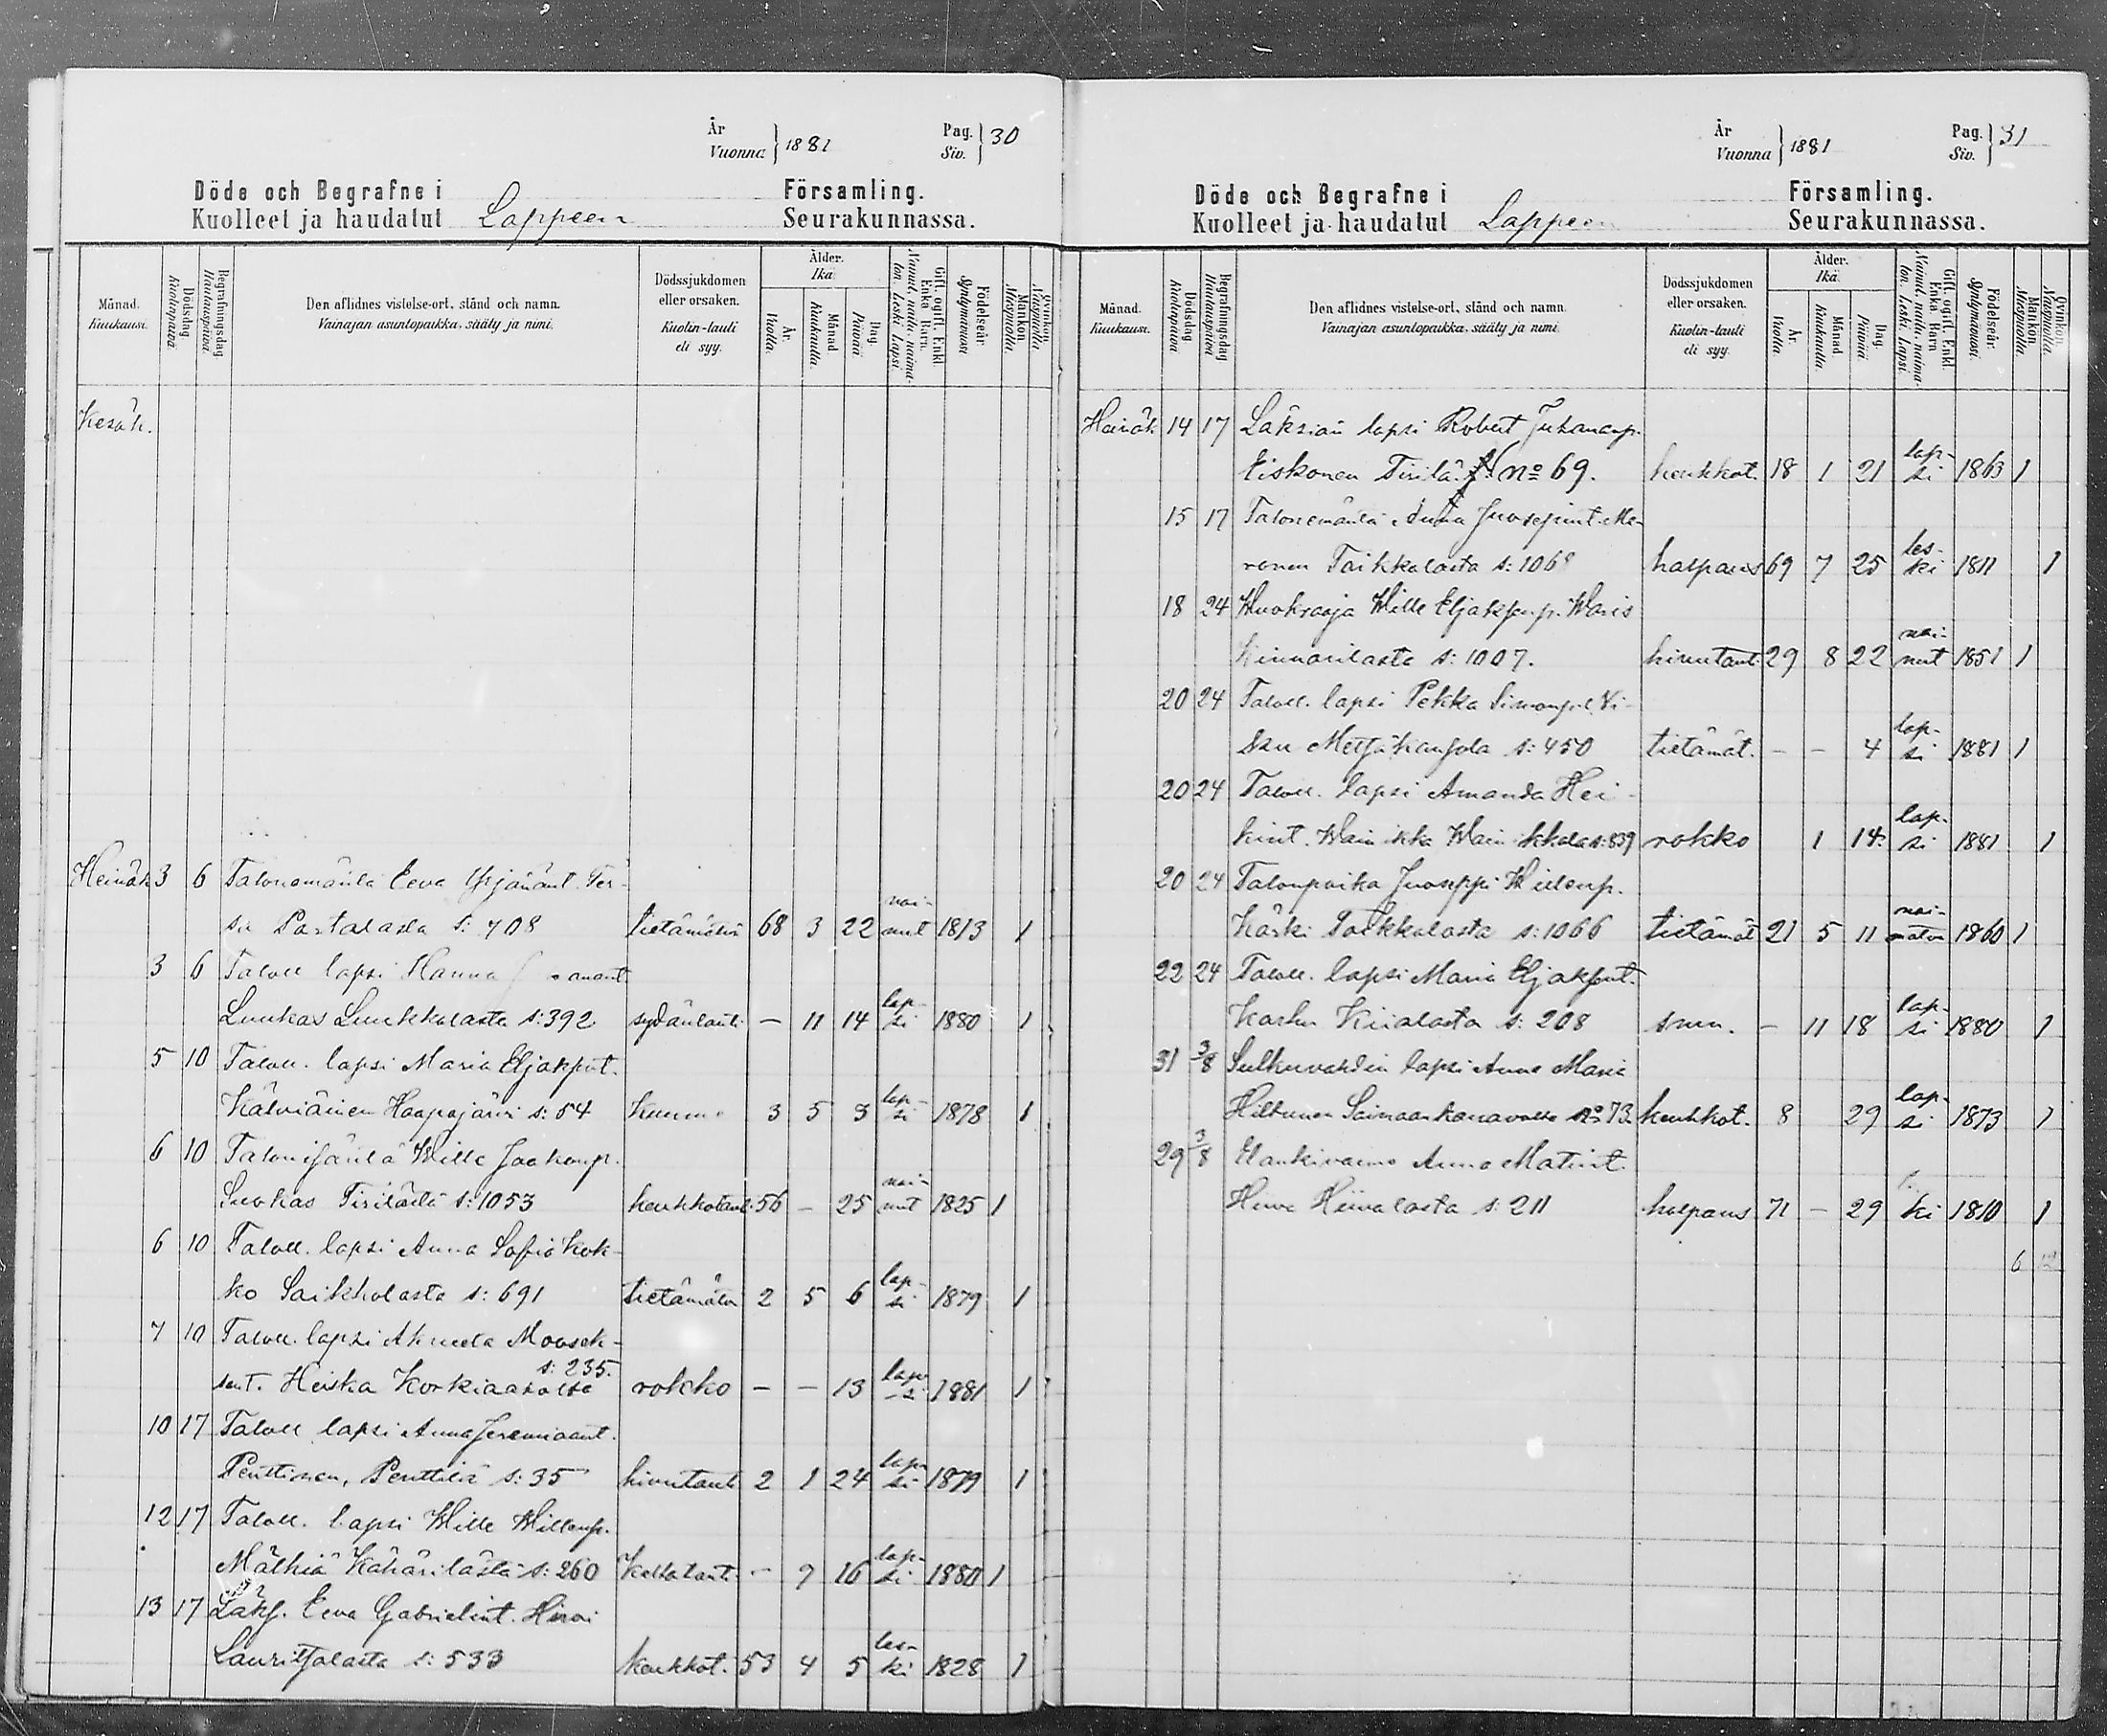 År
Vuonna } 1881
Pag.
Siv. } 30
Döde och Begrafne i Församling.
Kuolleet ja haudatut Lappeen Seurakunnassa.
Månad. Kuukausi.
Dödsdag Kuolinpäivä
Begrafningsdag Hautauspäivä.
Den aflidnes vistelse-ort, stånd och namn.
Vainajan asuntopaikka, sääty ja nimi.
Dödssjukdomen eller orsaken.
Kuolin-tauti eli syy.
Ålder. Ikä.
År. Vuotta.
Månad Kuukautta.
Dag. Päivää
Gift, ogift, Enkl. Enka Barn.
Nainut, naitu, naimaton. Leski. Lapsi.
Födelseår. Syntymävuosi
Mankön. Miespuolia.
Qvinkön. Naispuolia.
Kesäk.
Heinäk 3 6 Talonemäntä Eeva Yrjänänt. Ter-
su Partalasta s: 708 tietämätön 68 3 22 nai-nut 1813 1
3 6 Taloll lapsi Hanna
Luukas Luukkalasta s: 392 sydäntauti – 11 14 lap-si 1880 1
5 10 Taloll. lapsi Maria Eljakpint.
Kälviäinen Haapajärvi s: 54 Kuume 3 5 3 lap-si 1878 1
6 10 Talonisäntä Wille Jaakonp.
Suokas Tirilästä s: 1053 keuhkotaut. 56 – 25 nai-nut 1825 1
6 10 Taloll. lapsi Anna Sofia Kok-
ko Saikkolasta s: 691 tietämätön 2 5 6 lap-si 1879 1
7 10 Taloll. lapsi Akneeta Moosek-
s: 235.
sent. Heiska Korkiaaholta rokko – – 13 lap-si 1881 1
10 17 Taloll lapsi Anna Jeremiaant.
Penttinen, Penttilä s: 35 hivutauti 2 1 24 lap-si 1879 1
12 17 Taloll. lapsi Wille Willenp.
Mälkiä Kähärilästä s: 260 Keltataut. – 9 16 lap-si 1880 1
13 17 Läks. Eeva Gabrielint. Hirvi
Lauritsalasta s: 533 keuhkot. 53 4 5 les-ki 1828 1
År
Vuonna } 1881
Pag.
Siv. } 31
Döde och Begrafne i Församling.
Kuolleet ja haudatut Lappeen Seurakunnassa.
Månad. Kuukausi.
Dödsdag Kuolinpäivä
Begrafningsdag Hautauspäivä
Den aflidnes vistelse-ort, stånd och namn.
Vainajan asuntopaikka, sääty ja nimi.
Dödssjukdomen eller orsaken.
Kuolin-tauti eli syy.
Ålder. Ikä.
År. Vuotta
Månad Kuukautta
Dag. Päivää
Gift, ogift, Enkl. Enka Barn
Nainut, naitu, naimaton. Leski. Lapsi.
Födelseår. Syntymävuosi.
Mankön. Miespuolia
Qvinkön. Naispuolia.
Heinäk 14 17 Läksiän lapsi Robert Juhananp.
Eiskonen Tirilä no 69. keuhkot. 18 1 21 lap-si 1863 1
15 17 Talonemäntä Anna Juosepint. Me-
ronen Toikkalasta s: 106 halpaus 69 7 25 les-ki 1811 1
18 24 Wuokraaja Wille Eljakpinp. Waris
Kinnarilasta s: 1007. hivutaut. 29 8 22 nai-nut 1851 1
20 24 Taloll. lapsi Pekka Simonp. Vi-
sku Metsäkansola s: 450 tietämät. – – 4 lap-si 1881 1
20 24 Taloll. lapsi Amanda Hei-
kint. Wainikka Wainikkala s: 839 rokko 1 14 lap-si 1881 1
20 24 Talonpoika Juoseppi Willenp.
Kärki Toikkalasta s: 1066 tietämät 21 5 11 nai-maton 1860 1
22 24 Taloll. lapsi Maria Eljakpint.
Karhu Kiialasta s: 208 – 11 18 lap-si 1880 1
31 3/8 Sulkuvahdin lapsi Anna Maria
Hiltunen Saimaankanavalta no 73 keuhkot. 8 29 lap-si 1873 1
29 3/8 Elankivaimo Anna Matint.
Hiiva Hiivalasta s: 211 halpaus 71 – 29 ki 1810 1
6 12